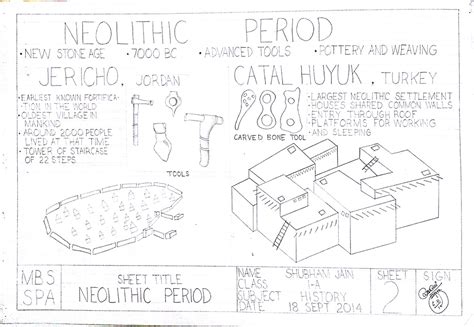 NEOLITHIC PERIOD
•NEW STONE AGE •7000 BC •ADVANCED TOOLS •POTTERY AND WEAVING
JERICHO, JORDAN
•EARLIEST KNOWN FORTIFICA-
TION IN THE WORLD
•OLDEST VILLAGE IN
MANKIND
•AROUND 2000 PEOPLE
LIVED AT THAT TIME
•TOWER OF STAIRCASE
OF 22 STEPS.
TOOLS
CATAL HUYUK, TURKEY
•LARGEST NEOLITHIC SETTLEMENT
•HOUSES SHARED COMMON WALLS
•ENTRY THROUGH ROOF
•PLATFORMS FOR WORKING
AND SLEEPING
CARVED BONE TOOL
MBS
SPA
SHEET TITLE
NEOLITHIC PERIOD
NAME SHUBHAM JAIN
CLASS I-A
SUBJECT HISTORY
DATE 18 SEPT 2014
SHEET
2
SIGN